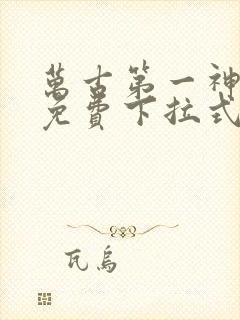 萬古第一神
免費下拉式
瓦烏